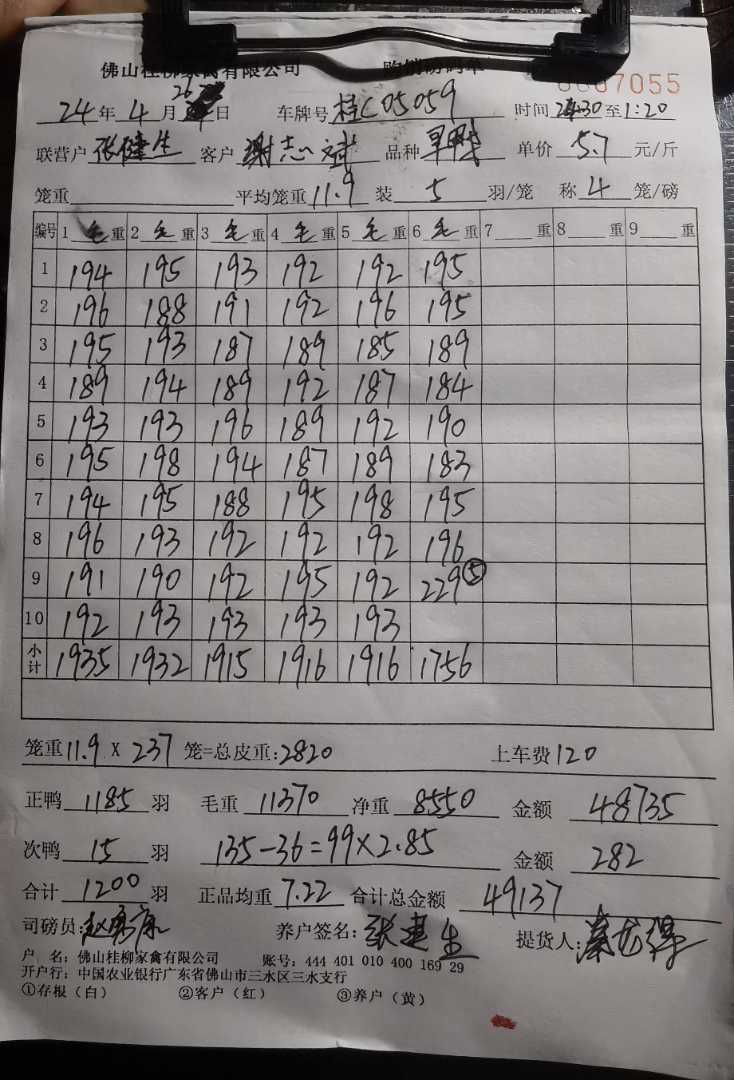 佛山桂柳家禽有限公司 购销磅码单
0007055
24年4月26日 车牌号桂C05059 时间2430至1:20
联营户张健生 客户谢志斌 品种旱鸭 单价5.7元/斤
笼重 平均笼重11.9 装5羽/笼 称4笼/磅
编号 1毛重 2毛重 3毛重 4毛重 5毛重 6毛重 7重 8重 9重
1 194 195 193 192 192 195
2 196 188 191 192 196 195
3 195 193 187 189 185 189
4 189 194 189 192 187 184
5 193 193 196 189 192 190
6 195 198 194 187 189 183
7 194 195 188 195 198 195
8 196 193 192 192 192 196
9 191 190 192 195 192 229⑤
10 192 193 193 193 193
小计 1935 1932 1915 1916 1916 1756
笼重11.9X237笼=总皮重:2820 上车费120
正鸭1185羽 毛重11370 净重8550 金额48735
次鸭15羽 135-36=99×2.85 金额282
合计1200羽 正品均重7.22 合计总金额49137
司磅员: 养户签名:张建生 提货人:
户 名:佛山桂柳家禽有限公司 账号:444 401 010 400 169 29
开户行:中国农业银行广东省佛山市三水区三水支行
①存根(白) ②客户(红) ③养户(黄)